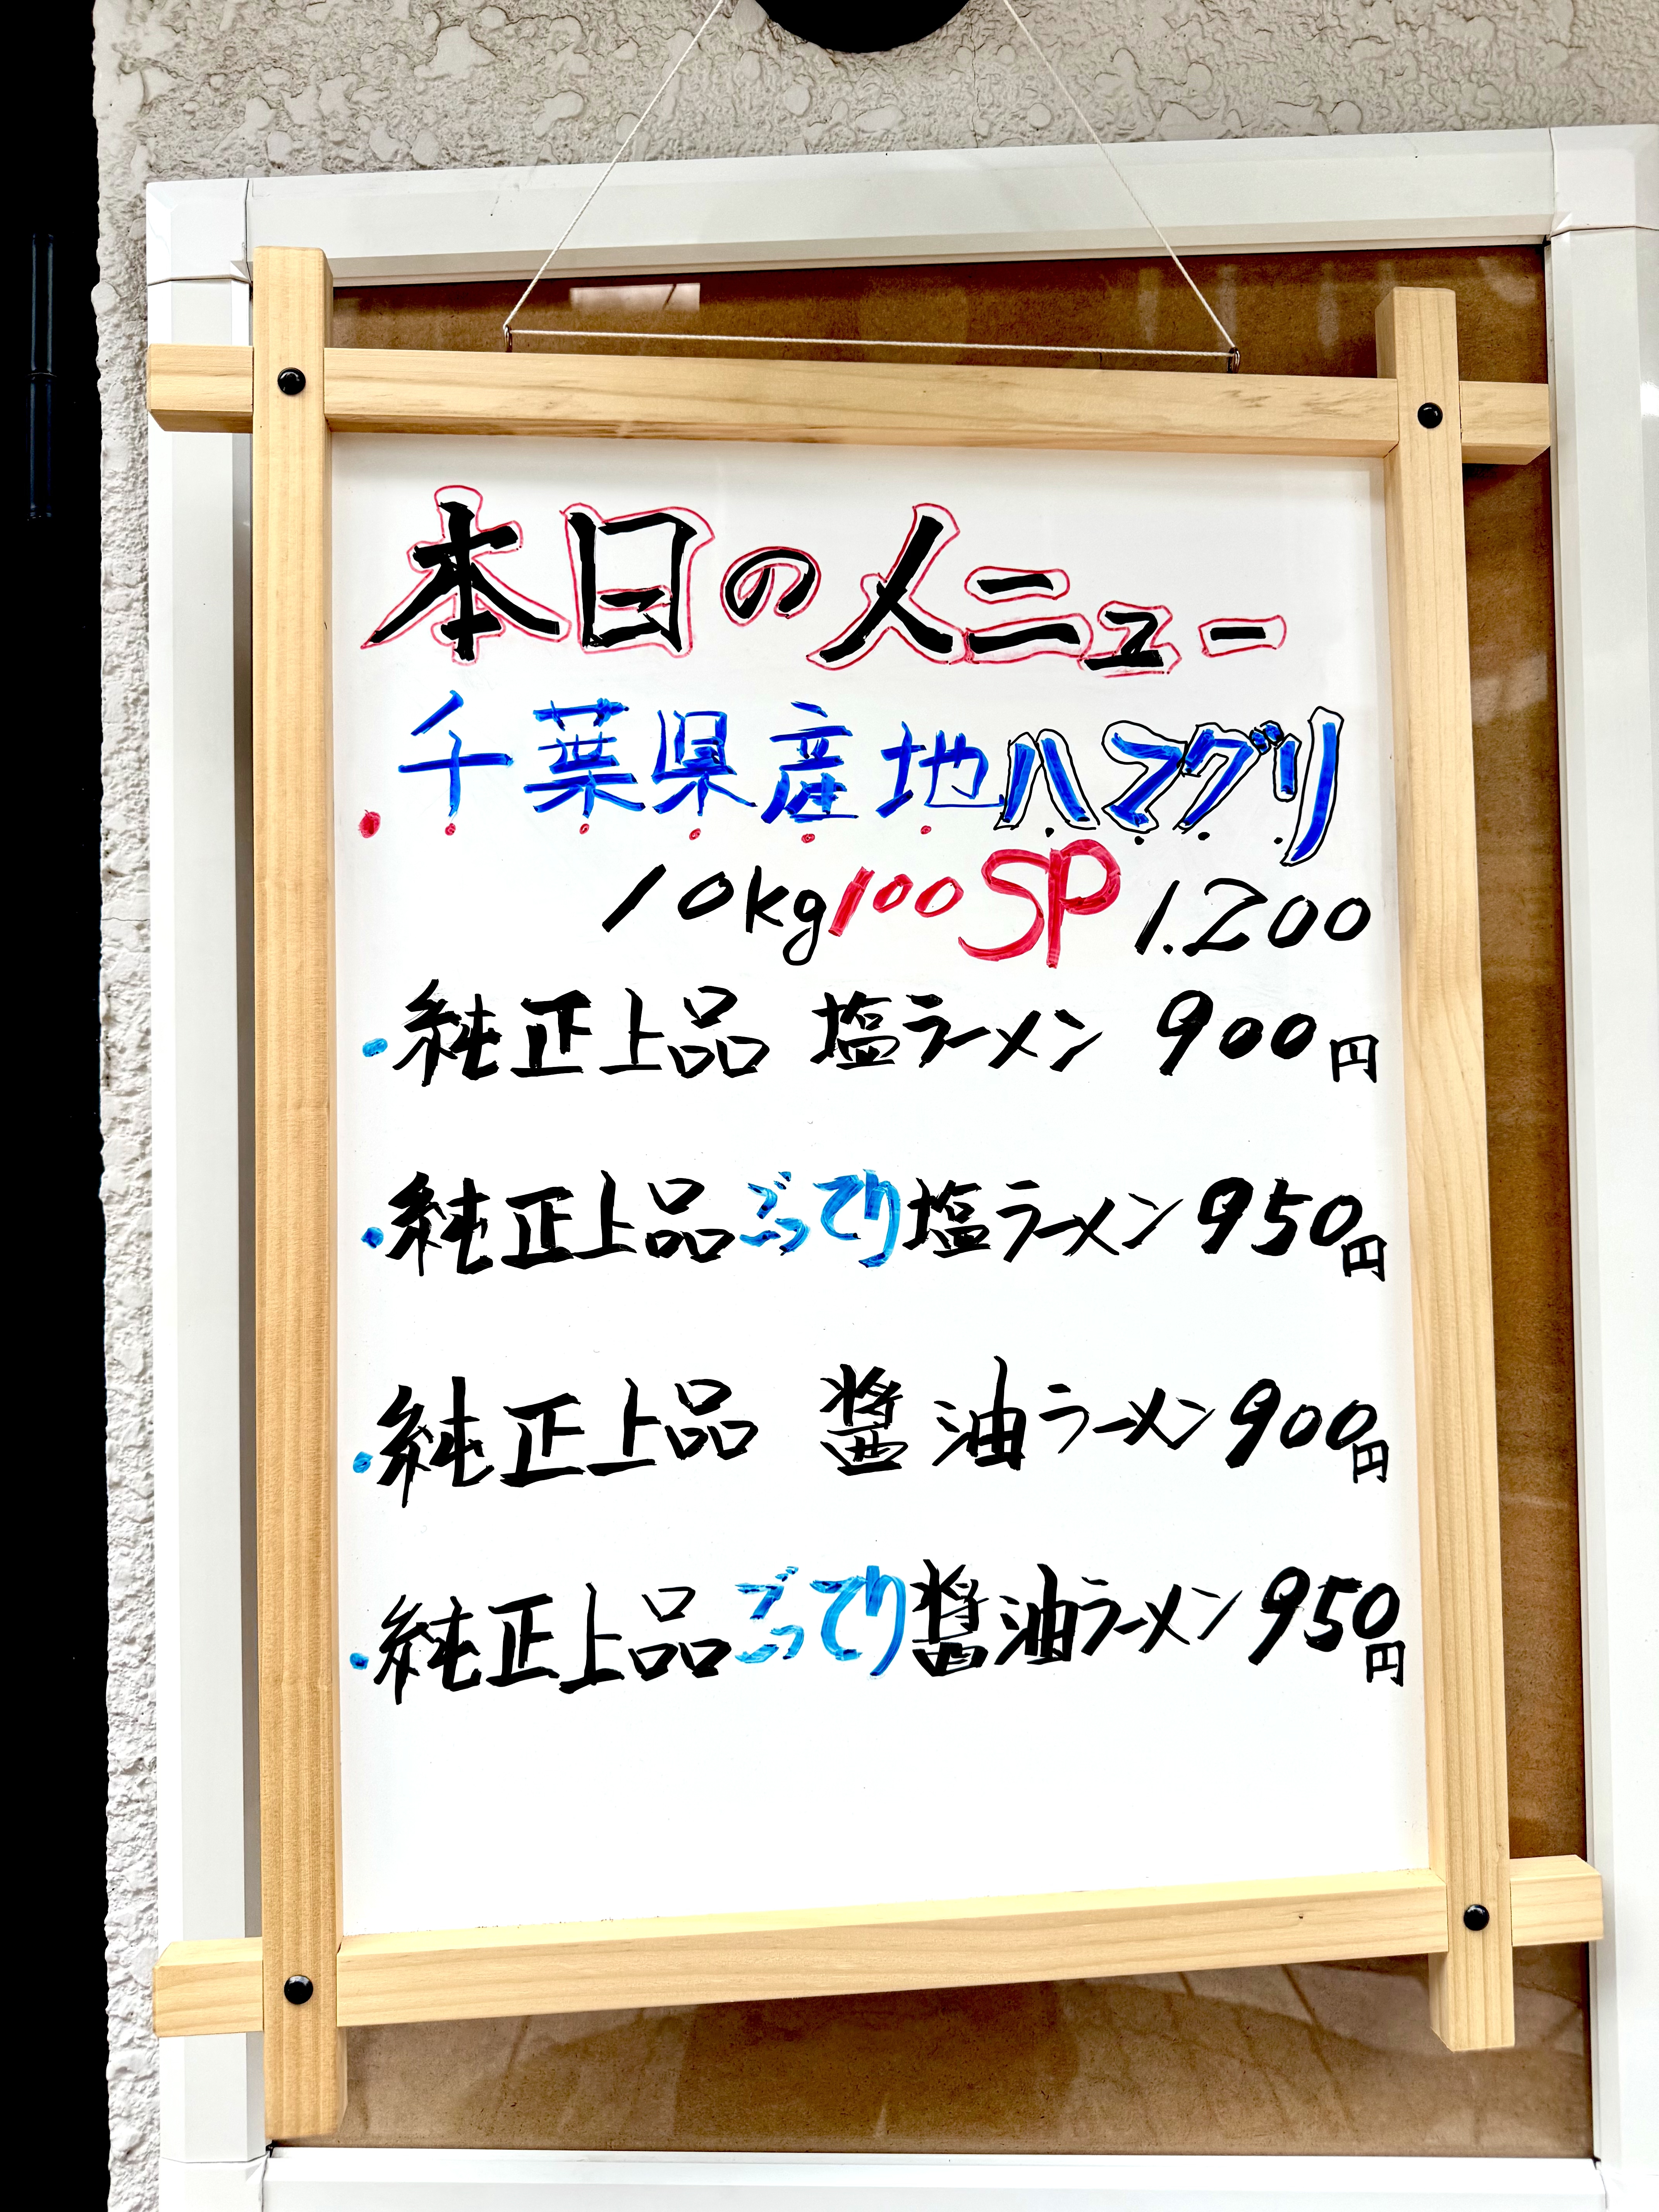 本日のメニュー
千葉県産地ハマグリ
10kg100SP 1.200
・純正上品 塩ラーメン 900円
・純正上品ごってり塩ラーメン950円
・純正上品 醤油ラーメン900円
・純正上品ごってり醤油ラーメン950円